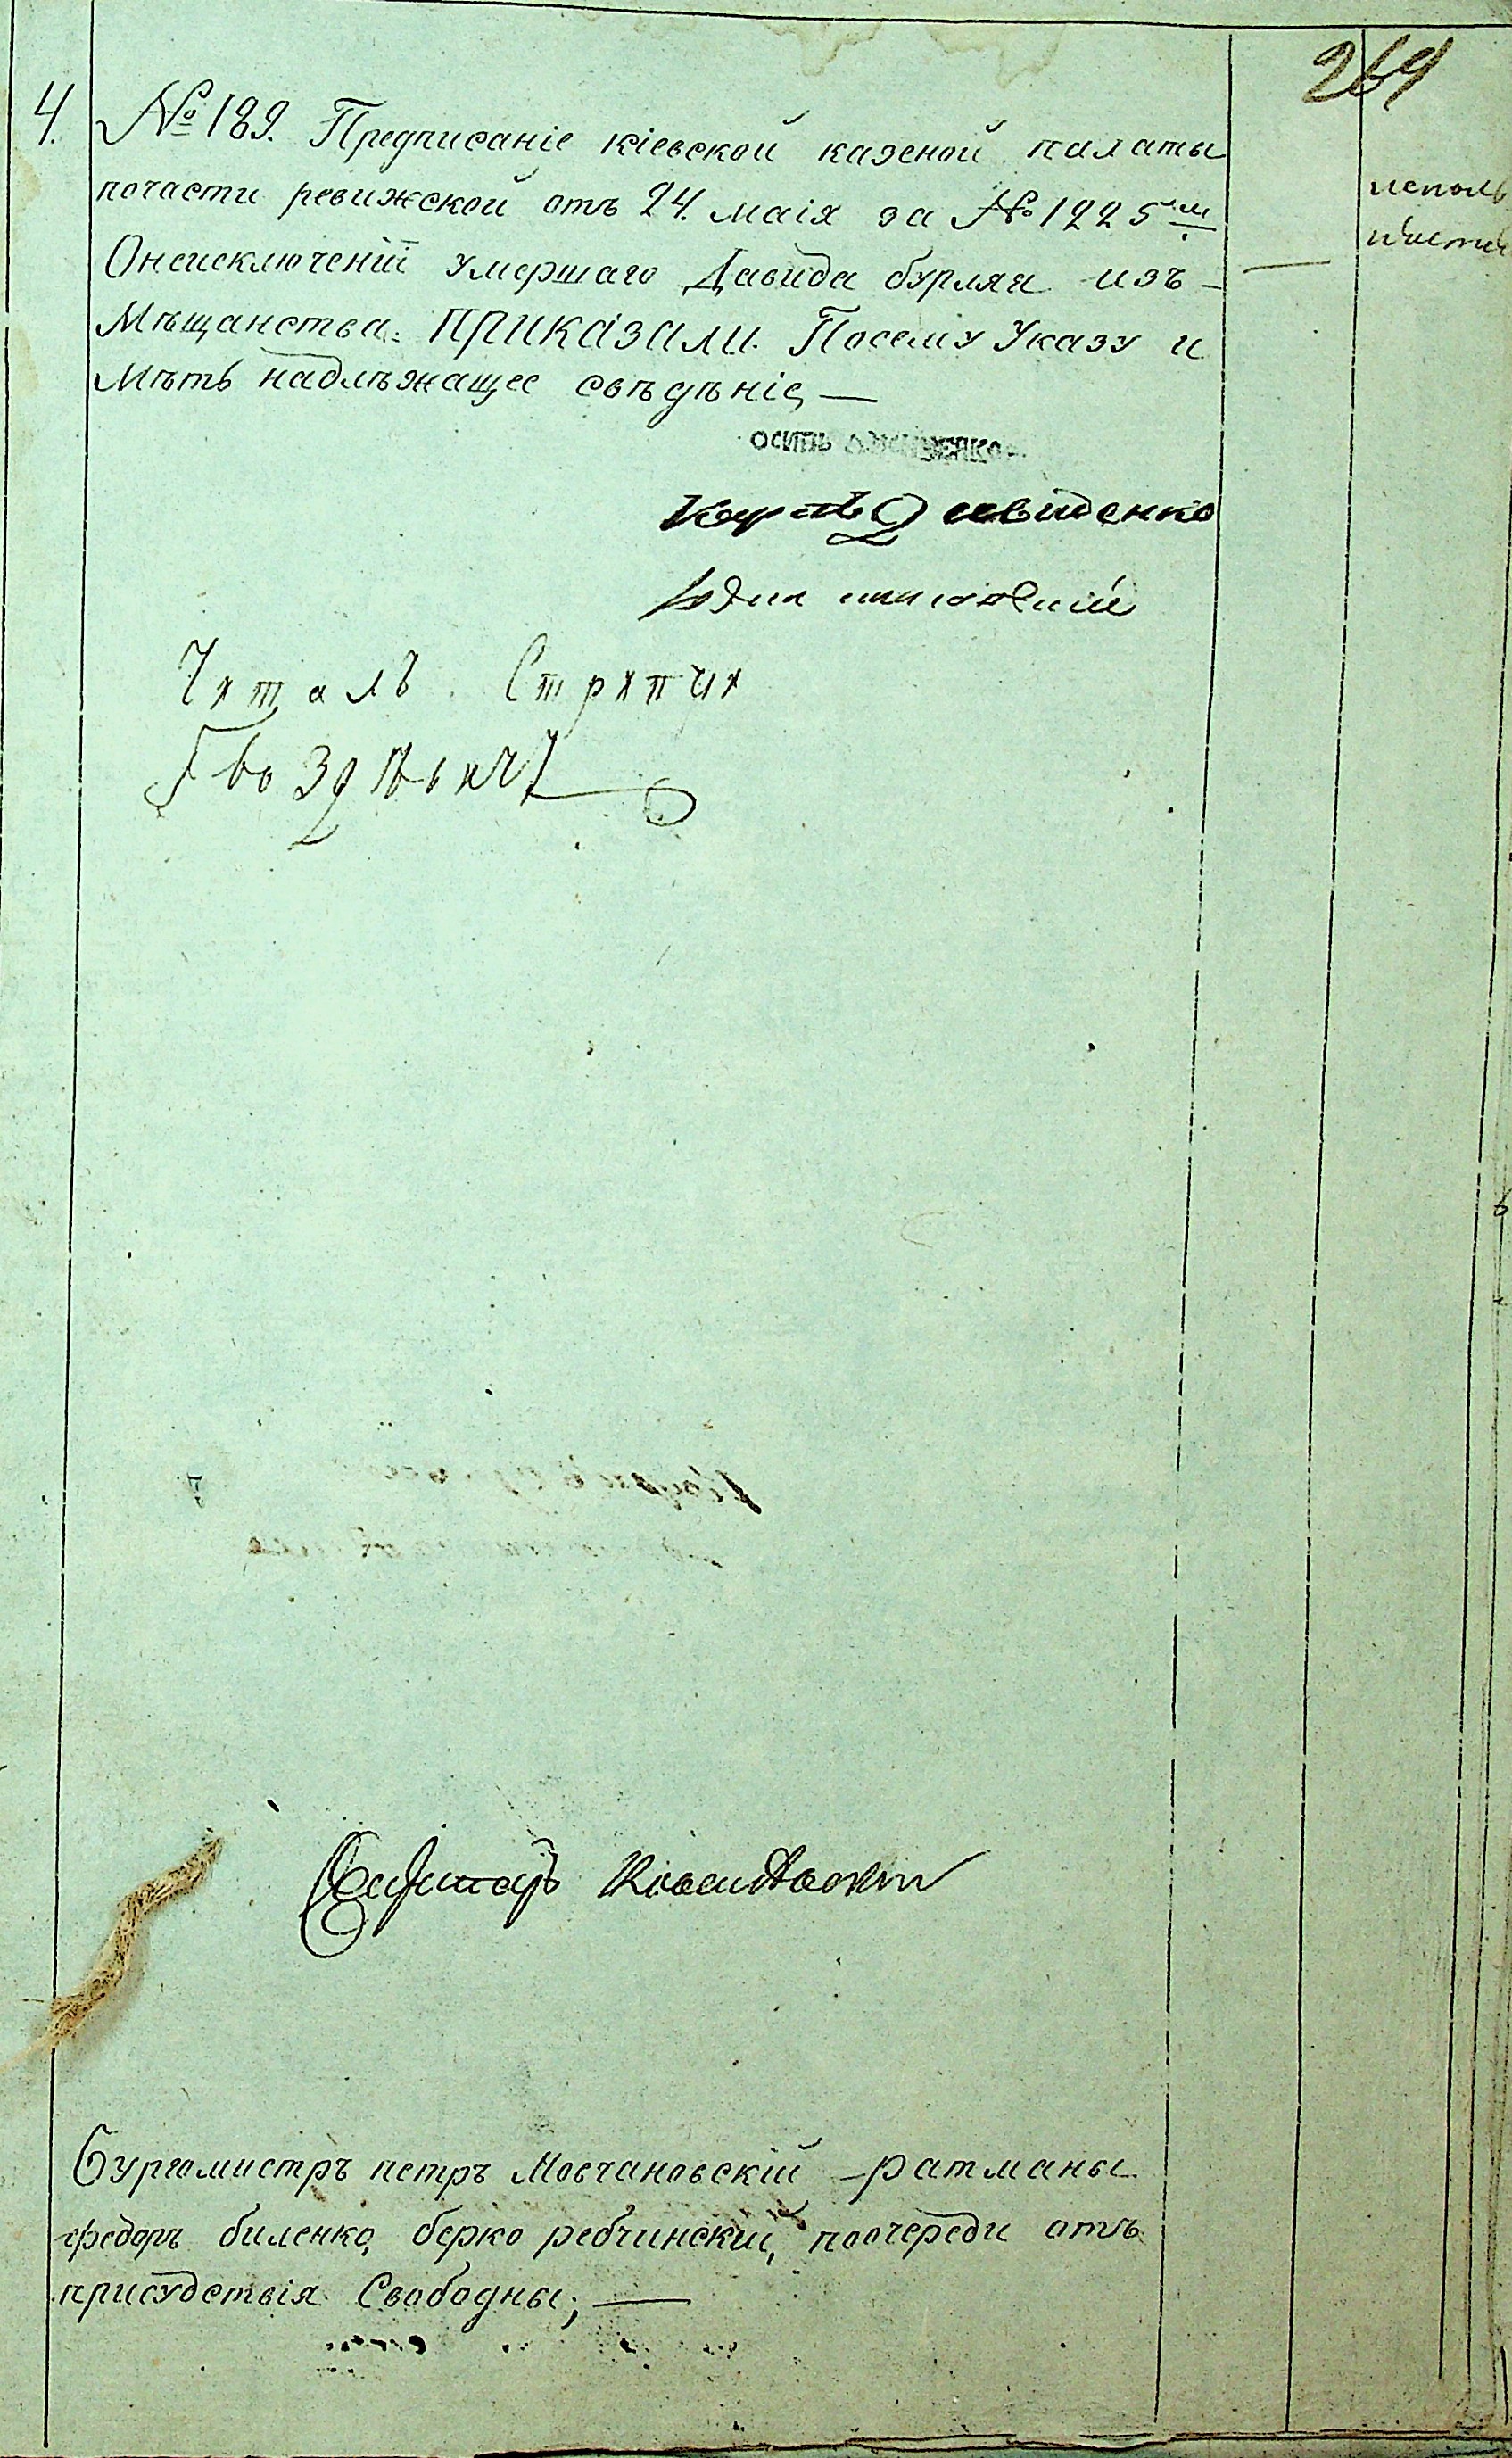 269
4. № 189. Предписаніе кіевской казеной палаты
почасти ревижской отъ 24. маія за № 1225м
Онеисключеніи умершаго Давида бурлая изъ
Мѣщанства. ПРИКАЗАЛИ. Посему Указу и
Мѣть надлѣжащее свѣдѣніе, —
осипъ
Давиденко
Читалъ Стряпчи
Гвоздѣвичъ
Бургомистръ петръ Мовчановскій — ратманы
федоръ биленко, берко ребчинскии, поочереди отъ
присудствія Свободны; —